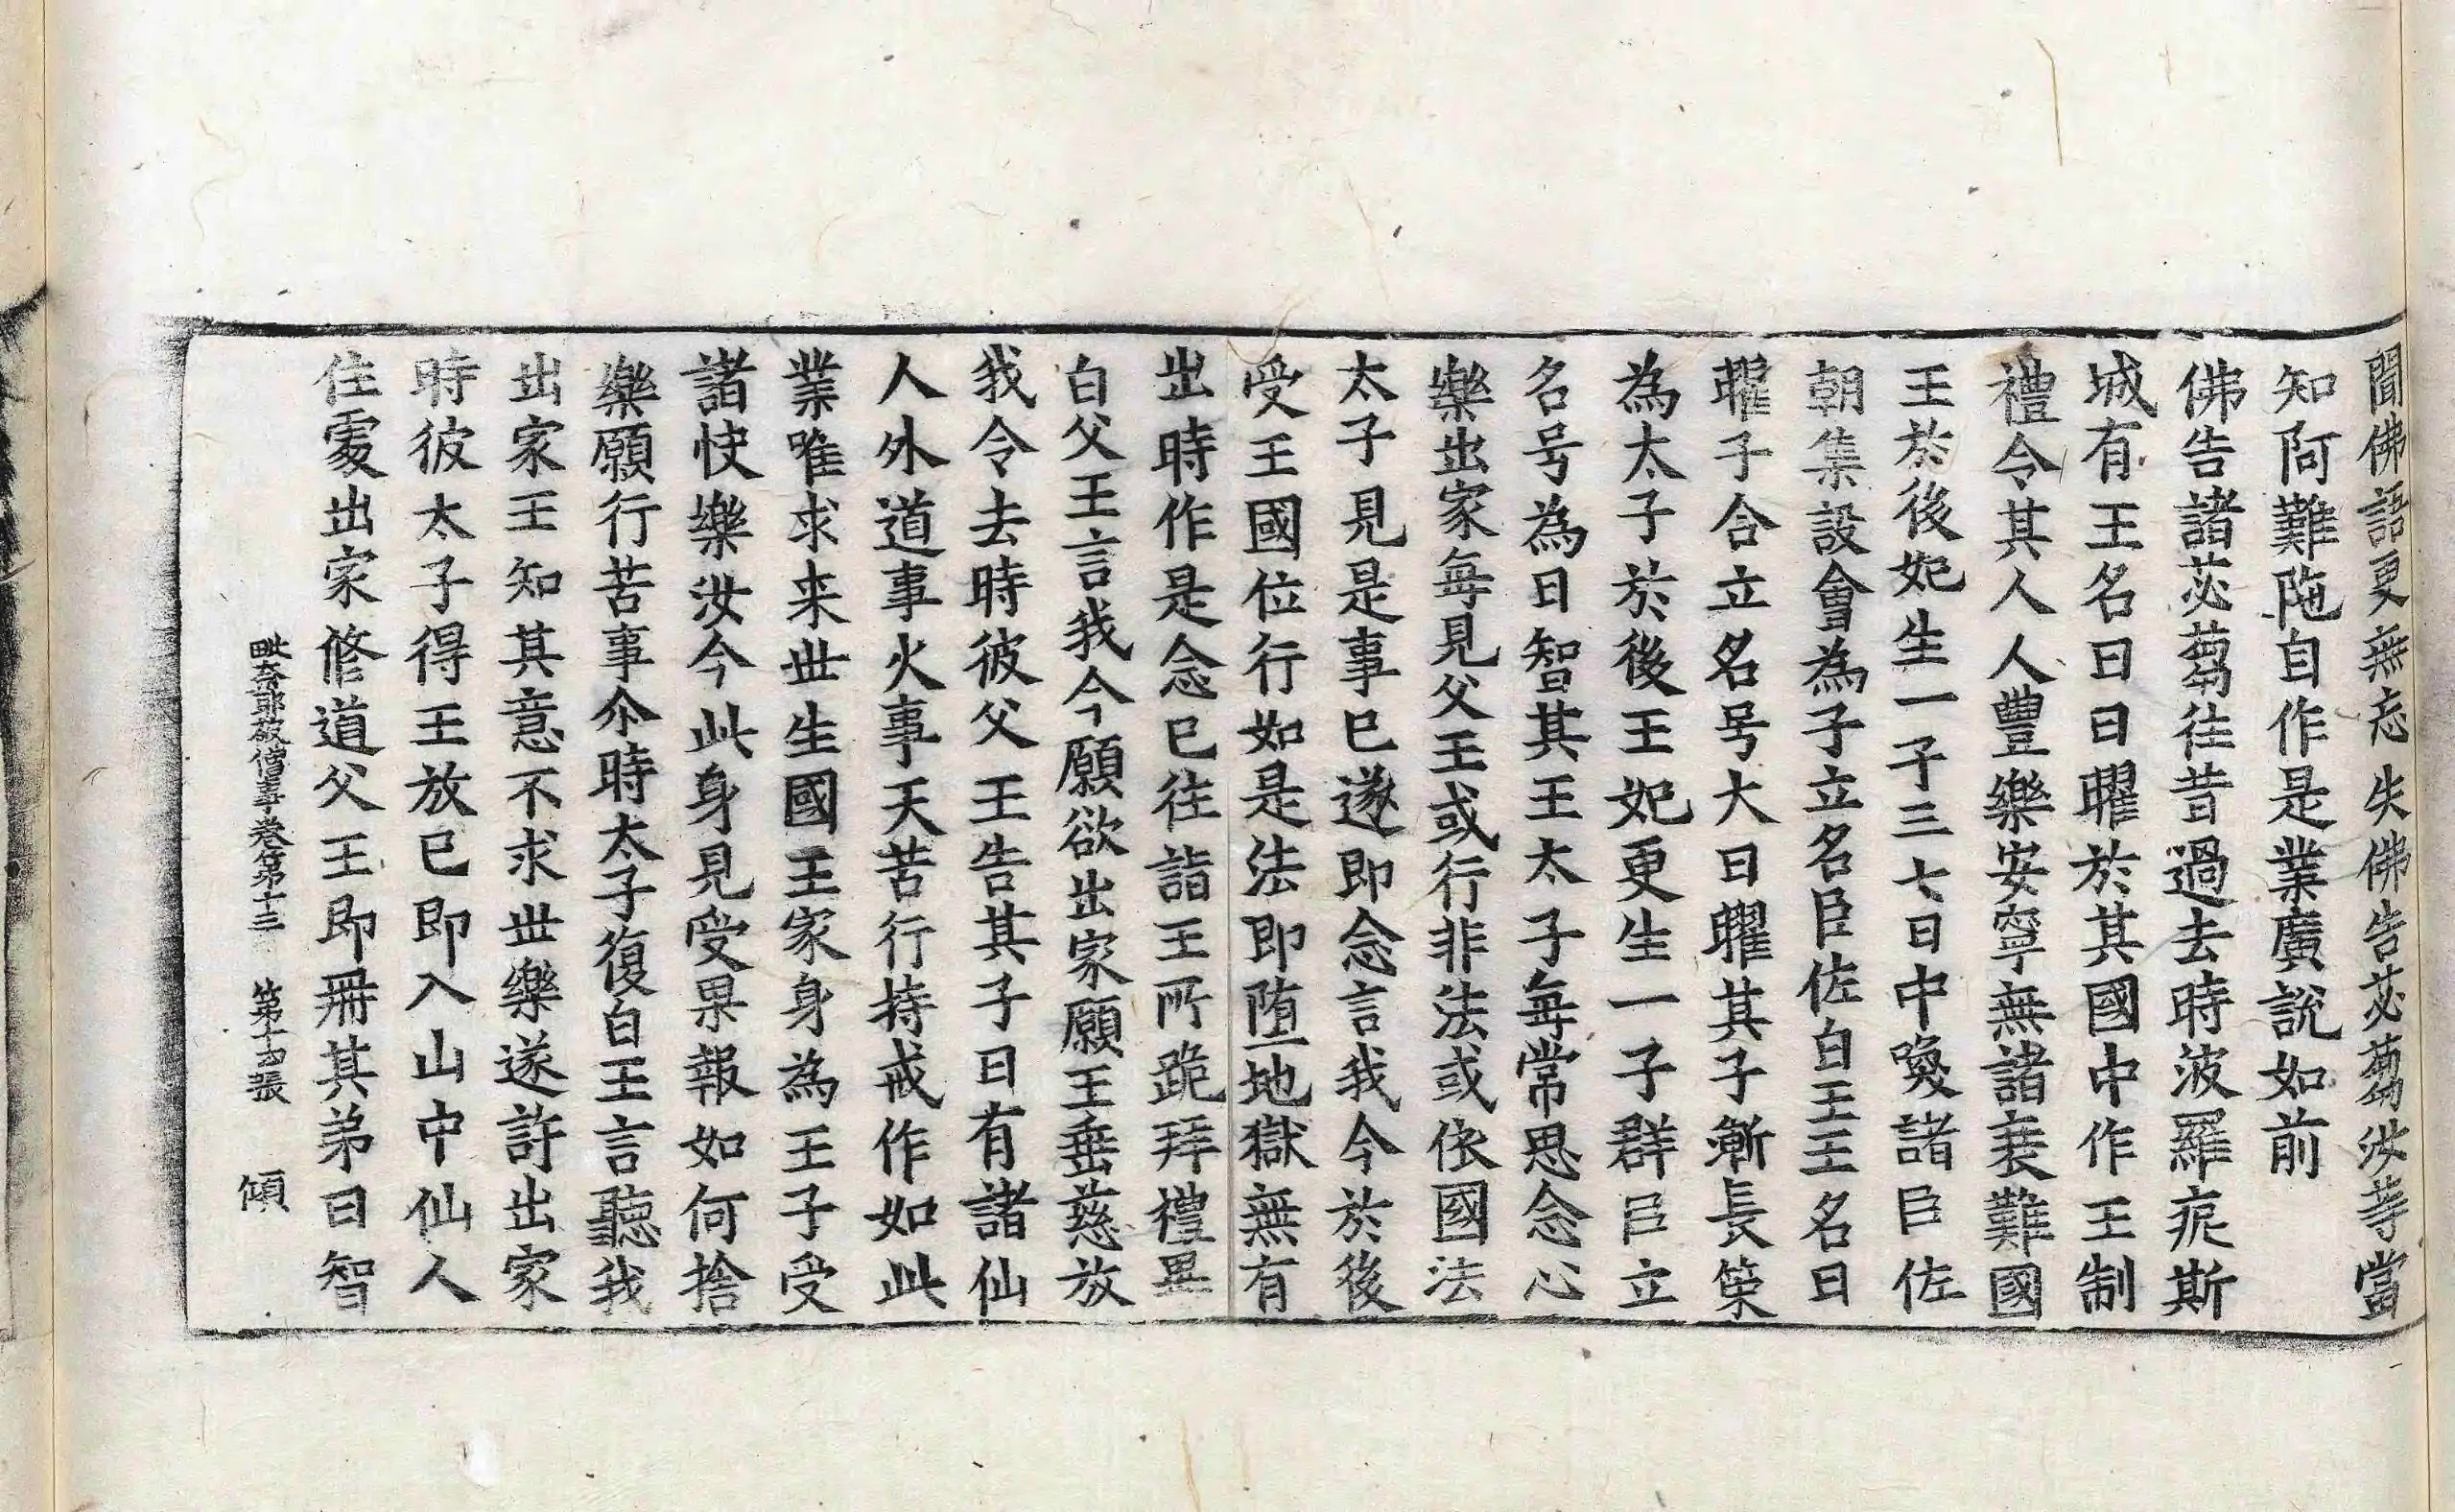 聞佛語更無忘失佛告苾蒭汝等當
知阿難陁自作是業廣說如前
佛告諸苾蒭往昔過去時波羅痆斯
城有王名曰日曜於其國中作王制
禮令其人人豐樂安寧無諸衰難國
王於後妃生一子三七日中喚諸臣佐
朝集設會為子立名臣佐白王王名日
曜子合立名号大日曜其子漸長策
為太子於後王妃更生一子群臣立
名号為日智其王太子每常思念心
樂出家每見父王或行非法或依國法
太子見是事已遂即念言我今於後
受王國位行如是法即墮地獄無有
出時作是念已往詣王所跪拜禮畢
白父王言我今願欲出家願王垂慈放
我令去時彼父王告其子曰有諸仙
人外道事火事天苦行持戒作如此
業唯求来世生國王家身為王子受
諸快樂汝今此身見受果報如何捨
樂願行苦事尒時太子復白王言聽我
出家王知其意不求世樂遂許出家
時彼太子得王放已即入山中仙人
住處出家修道父王即冊其弟日智
毗奈耶破僧事卷第十三 第十四張 傾